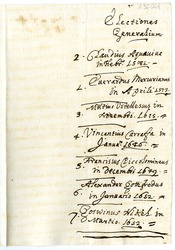 Electiones
Generalium
2. Claudius Aquaviva
in Febr. 1581.
1. Everardus Mercurianus
in Aprili 1573.
Mutius Vitellescus in
3. Novembri. 1615.
4. Vincentius Carrafa in
Janu. 1646.
5. Franciscus Piccolomineus
in Decembri 1649.
Alexander Gottifredus
6. in Januario 1652.
Goswinus Nikel in
7. Martio. 1652.